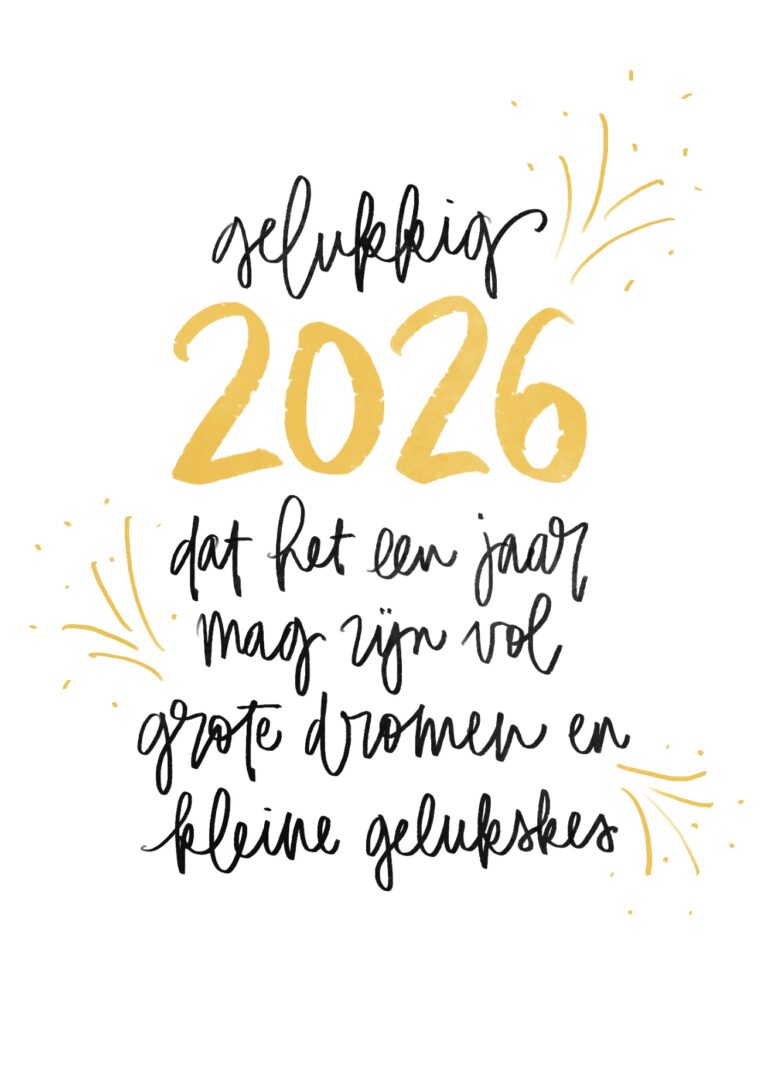 gelukkig
2026
dat het een jaar
mag zijn vol
grote dromen en
kleine gelukskes